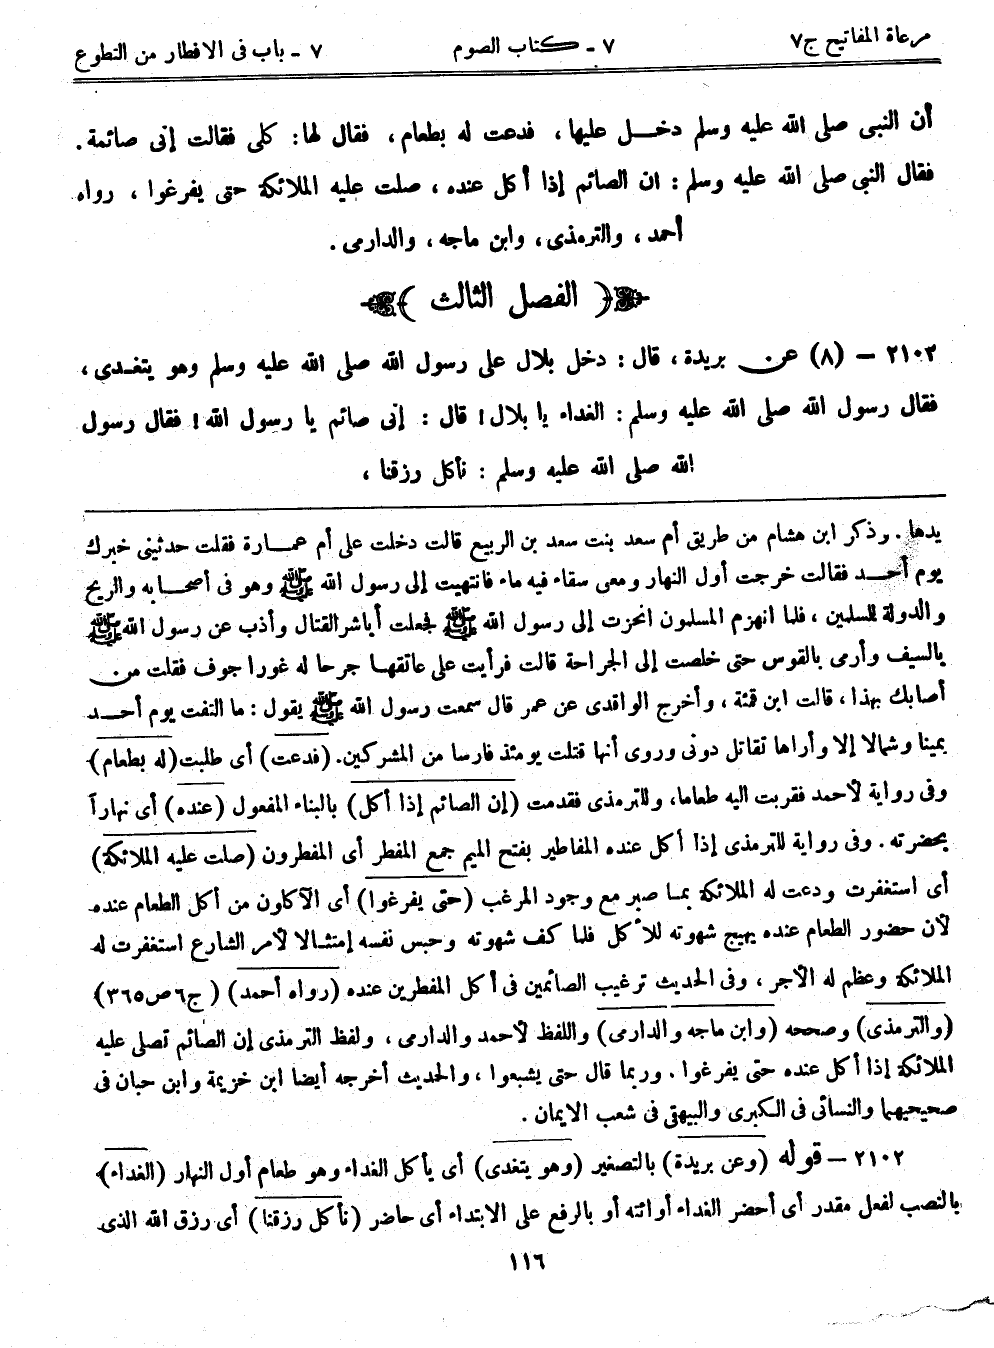 مرعاة المفاتيح ج٧ ٧ - كتاب الصوم ٧ - باب فى الافطار من التطوع
أن النبى صلى الله عليه وسلم دخل عليها، فدعت له بطعام، فقال لها: كلى فقالت إنى صائمة.
فقال النبى صلى الله عليه وسلم: ان الصائم إذا أكل عنده، صلت عليه الملائكة حتى يفرغوا، رواه
أحمد، والترمذى، وابن ماجه، والدارمى.
﴿ الفصل الثالث ﴾
٢١٠٣ – (٨) عن بريدة، قال: دخل بلال على رسول الله صلى الله عليه وسلم وهو يتغدى،
فقال رسول الله صلى الله عليه وسلم: الغداء يا بلال! قال: إنى صائم يا رسول الله! فقال رسول
الله صلى الله عليه وسلم: نأكل رزقنا،
يدها. وذكر ابن هشام من طريق أم سعد بنت سعد بن الربيع قالت دخلت على أم عمارة فقلت حدثينى خبرك
يوم أحد فقالت خرجت أول النهار ومعى سقاء فيه ماء فانتهيت إلى رسول الله ﷺ وهو فى أصحابه والريح
والدولة للسلمين، فلما انهزم المسلمون انحزت إلى رسول الله ﷺ فجعلت أباشر القتال وأذب عن رسول الله ﷺ
بالسيف وأرمى بالقوس حتى خلصت إلى الجراحة قالت فرأيت على عاتقها جرحا له غورا جوف فقلت من
أصابك بهذا، قالت ابن قمئة، وأخرج الواقدى عن عمر قال سمعت رسول الله ﷺ يقول: ما التفت يوم أحد
يمينا وشمالا إلا وأراها تقاتل دونى وروى أنها قتلت يومئذ فارسا من المشركين. (فدعت) أى طلبت (له بطعام)
وفى رواية لأحمد فقربت اليه طعاما، وللترمذى فقدمت (إن الصائم إذا أكل) بالبناء المفعول (عنده) أى نهاراً
بحضرته. وفى رواية للترمذى إذا أكل عنده المفاطير بفتح الميم جمع المفطر أى المفطرون (صلت عليه الملائكة)
أى استغفرت ودعت له الملائكة بما صبر مع وجود المرغب (حتى يفرغوا) أى الآكلون من أكل الطعام عنده
لأن حضور الطعام عنده يهيج شهوته للأكل فلما كف شهوته وحبس نفسه إمتثالا لأمر الشارع استغفرت له
الملائكة وعظم له الأجر، وفى الحديث ترغيب الصائمين فى أكل المفطرين عنده (رواه أحمد) (ج٦ ص٣٦٥)
(والترمذى) وصححه (وابن ماجه والدارمى) واللفظ لأحمد والدارمى، ولفظ الترمذى إن الصائم تصلى عليه
الملائكة إذا أكل عنده حتى يفرغوا. وربما قال حتى يشبعوا، والحديث أخرجه أيضا ابن خزيمة وابن حبان فى
صحيحيهما والنسائى فى الكبرى والبيهقى فى شعب الايمان.
٢١٠٢ – قوله (وعن بريدة) بالتصغير (وهو يتغدى) أى يأكل الغداء وهو طعام أول النهار (الغداء)
بالنصب لفعل مقدر أى أحضر الغداء أو ائته أو بالرفع على الابتداء أى حاضر (نأكل رزقنا) أى رزق الله الذى
١١٦